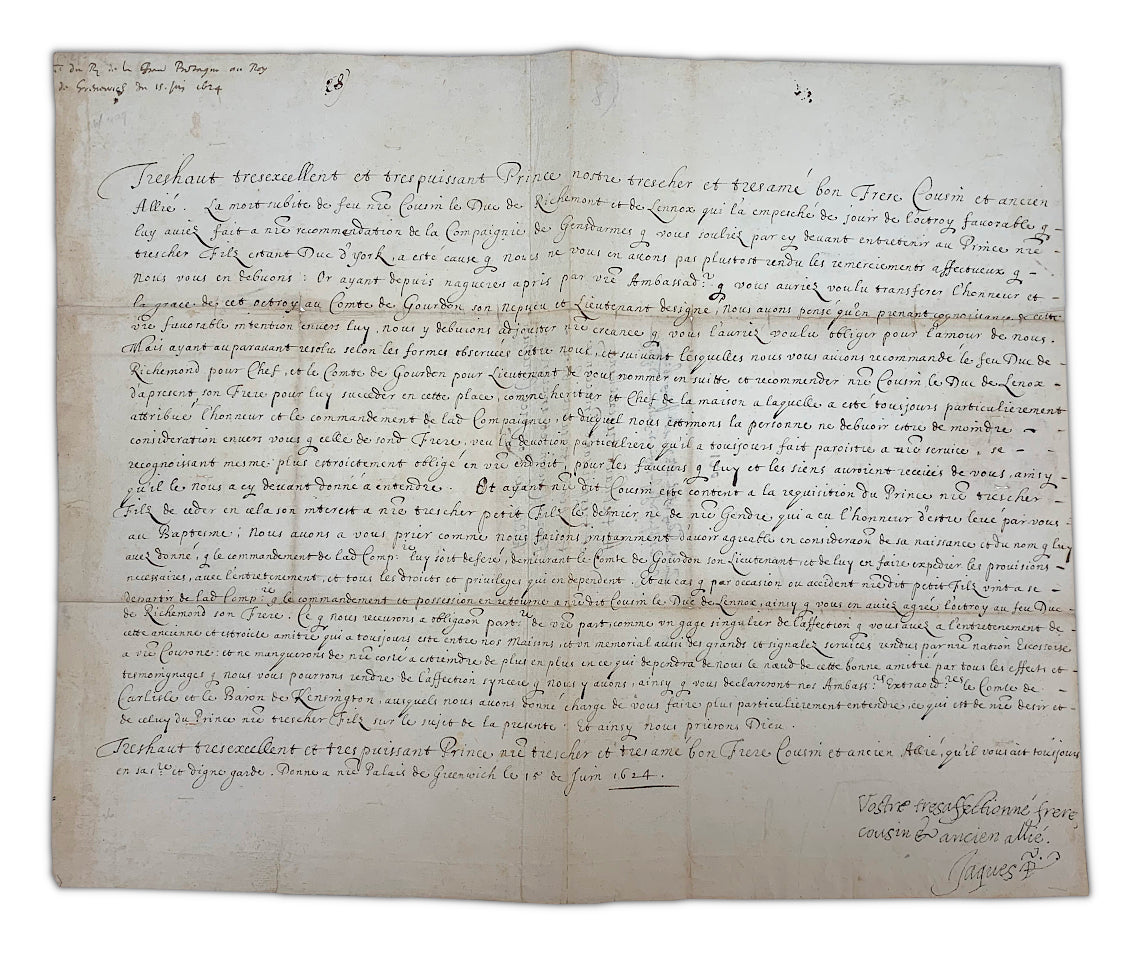 du R. de la Gran Bretagne au Roy
de Grenewich du 15. Juin 1624
28
8
Treshaut tresexcellent et trespuissant Prince nostre trescher et tresamé bon Frere Cousin et ancien
Allié. La mort subite de feu nr̃e Cousin le Duc de Richemont et de Lennox qui l'a empesché de jouir de l'octroy favorable q̃
luy aviez fait a nr̃e recommendation de la Compaignie de Gensdarmes q̃ vous souliez par cy devant entretenir au Prince nr̃e
trescher Filz estant Duc d'york, a este cause q̃ nous ne vous en avons pas plustost rendu les remerciements affectueux q̃
nous vous en debuons: Or ayant depuis nagueres apris par vr̃e Ambassad.r q̃ vous auriez voulu transferer l'honneur et
la grace de cet octroy au Comte de Gourdon son nepveu et Lieutenant designé, Nous avons pensé qu'en prenant cognoissance de cette
vr̃e favorable intention envers luy, nous y debuions adjouster nr̃e creance q̃ vous l'auriez voulu obliger pour l'amour de nous.
Mais ayant auparavant resolu selon les formes observees entre nous, et suivant lesquelles nous vous avions recommandé le feu Duc de
Richemond pour Chef, et le Comte de Gourdon pour Lieutenant de vous nommer en suitte et recommender nr̃e Cousin le Duc de Lenox
d'apresent son Frere pour luy succeder en cette place, comme heritier et Chef de la maison a laquelle a esté tousjours particulierement
attribue l'honneur et le commandement de lad Compaignie, et duquel nous estimons la personne ne debuoir estre de moindre
consideration envers vous q̃ celle de sond Frere, veu la devotion particuliere qu'il a tousjours fait paroistre a vr̃e service, se
recognoissant mesme plus estroictement obligé en vr̃e endroit, pour les faveurs q̃ luy et les siens auroient receues de vous, ainsy
qu'il le nous a cy devant donné a entendre. Et ayant nr̃e dit Cousin esté content a la requisition du Prince nr̃e trescher
Filz de ceder en cela son interest a nr̃e trescher petit Filz le dernier né de nr̃e Gendre qui a eu l'honneur d'estre levé par vous
au Baptesme; Nous avons a vous prier comme nous faisons instamment d'avoir agreable en consideraõn de sa naissance et du nom q̃ luy
avez donné, q̃ le commandement de lad Comp.ie luy soit deferé, demeurant le Comte de Gourdon son Lieutenant et de luy en faire expedier les provisions
necessaires, avec l'entretenement, et tous les droicts et privileges qui en dependent. Et au cas q̃ par occasion ou accident nr̃edit petit Filz vint a se
departir de lad Comp.ie q̃ le commandement et possession en retourne a nr̃edit Cousin le Duc de Lennox, ainsy q̃ vous en aviez agreé l'octroy au feu Duc
de Richemond son Frere: Ce q̃ nous recevrons a obligaõn part.re de vr̃e part, comme un gage singulier de l'affection q̃ vous avez a l'entretenement de
cette ancienne et estroicte amitié qui a tousjours esté entre nos Maisons, et un memorial aussi des grands et signalez services rendus par nr̃e nation Escossoise
a vr̃e Couronne: et ne manquerons de nr̃e costé a estreindre de plus en plus en ce qui dependra de nous le nœud de cette bonne amitié par tous les effects et
tesmoignages q̃ nous vous pourrons rendre de l'affection syncere q̃ nous y avons, ainsy q̃ vous declareront nos Ambass.rs Extraord.res le Comte de
Carlisle et le Baron de Kensington, ausquels nous avons donné charge de vous faire plus particulierement entendre ce qui est de nr̃e desir et
de celuy du Prince nr̃e trescher Filz sur le sujet de la presente. Et ainsy nous prierons Dieu
Treshaut tresexcellent et trespuissant Prince nr̃e trescher et tresamé bon Frere Cousin et ancien Allié, qu'il vous ait tousjours
en sa s.te et digne garde. Donné a nr̃e Palais de Greenwich le 15 de Juin 1624.
Vostre tresaffectionné frere,
cousin & ancien allié.
Jaques R.